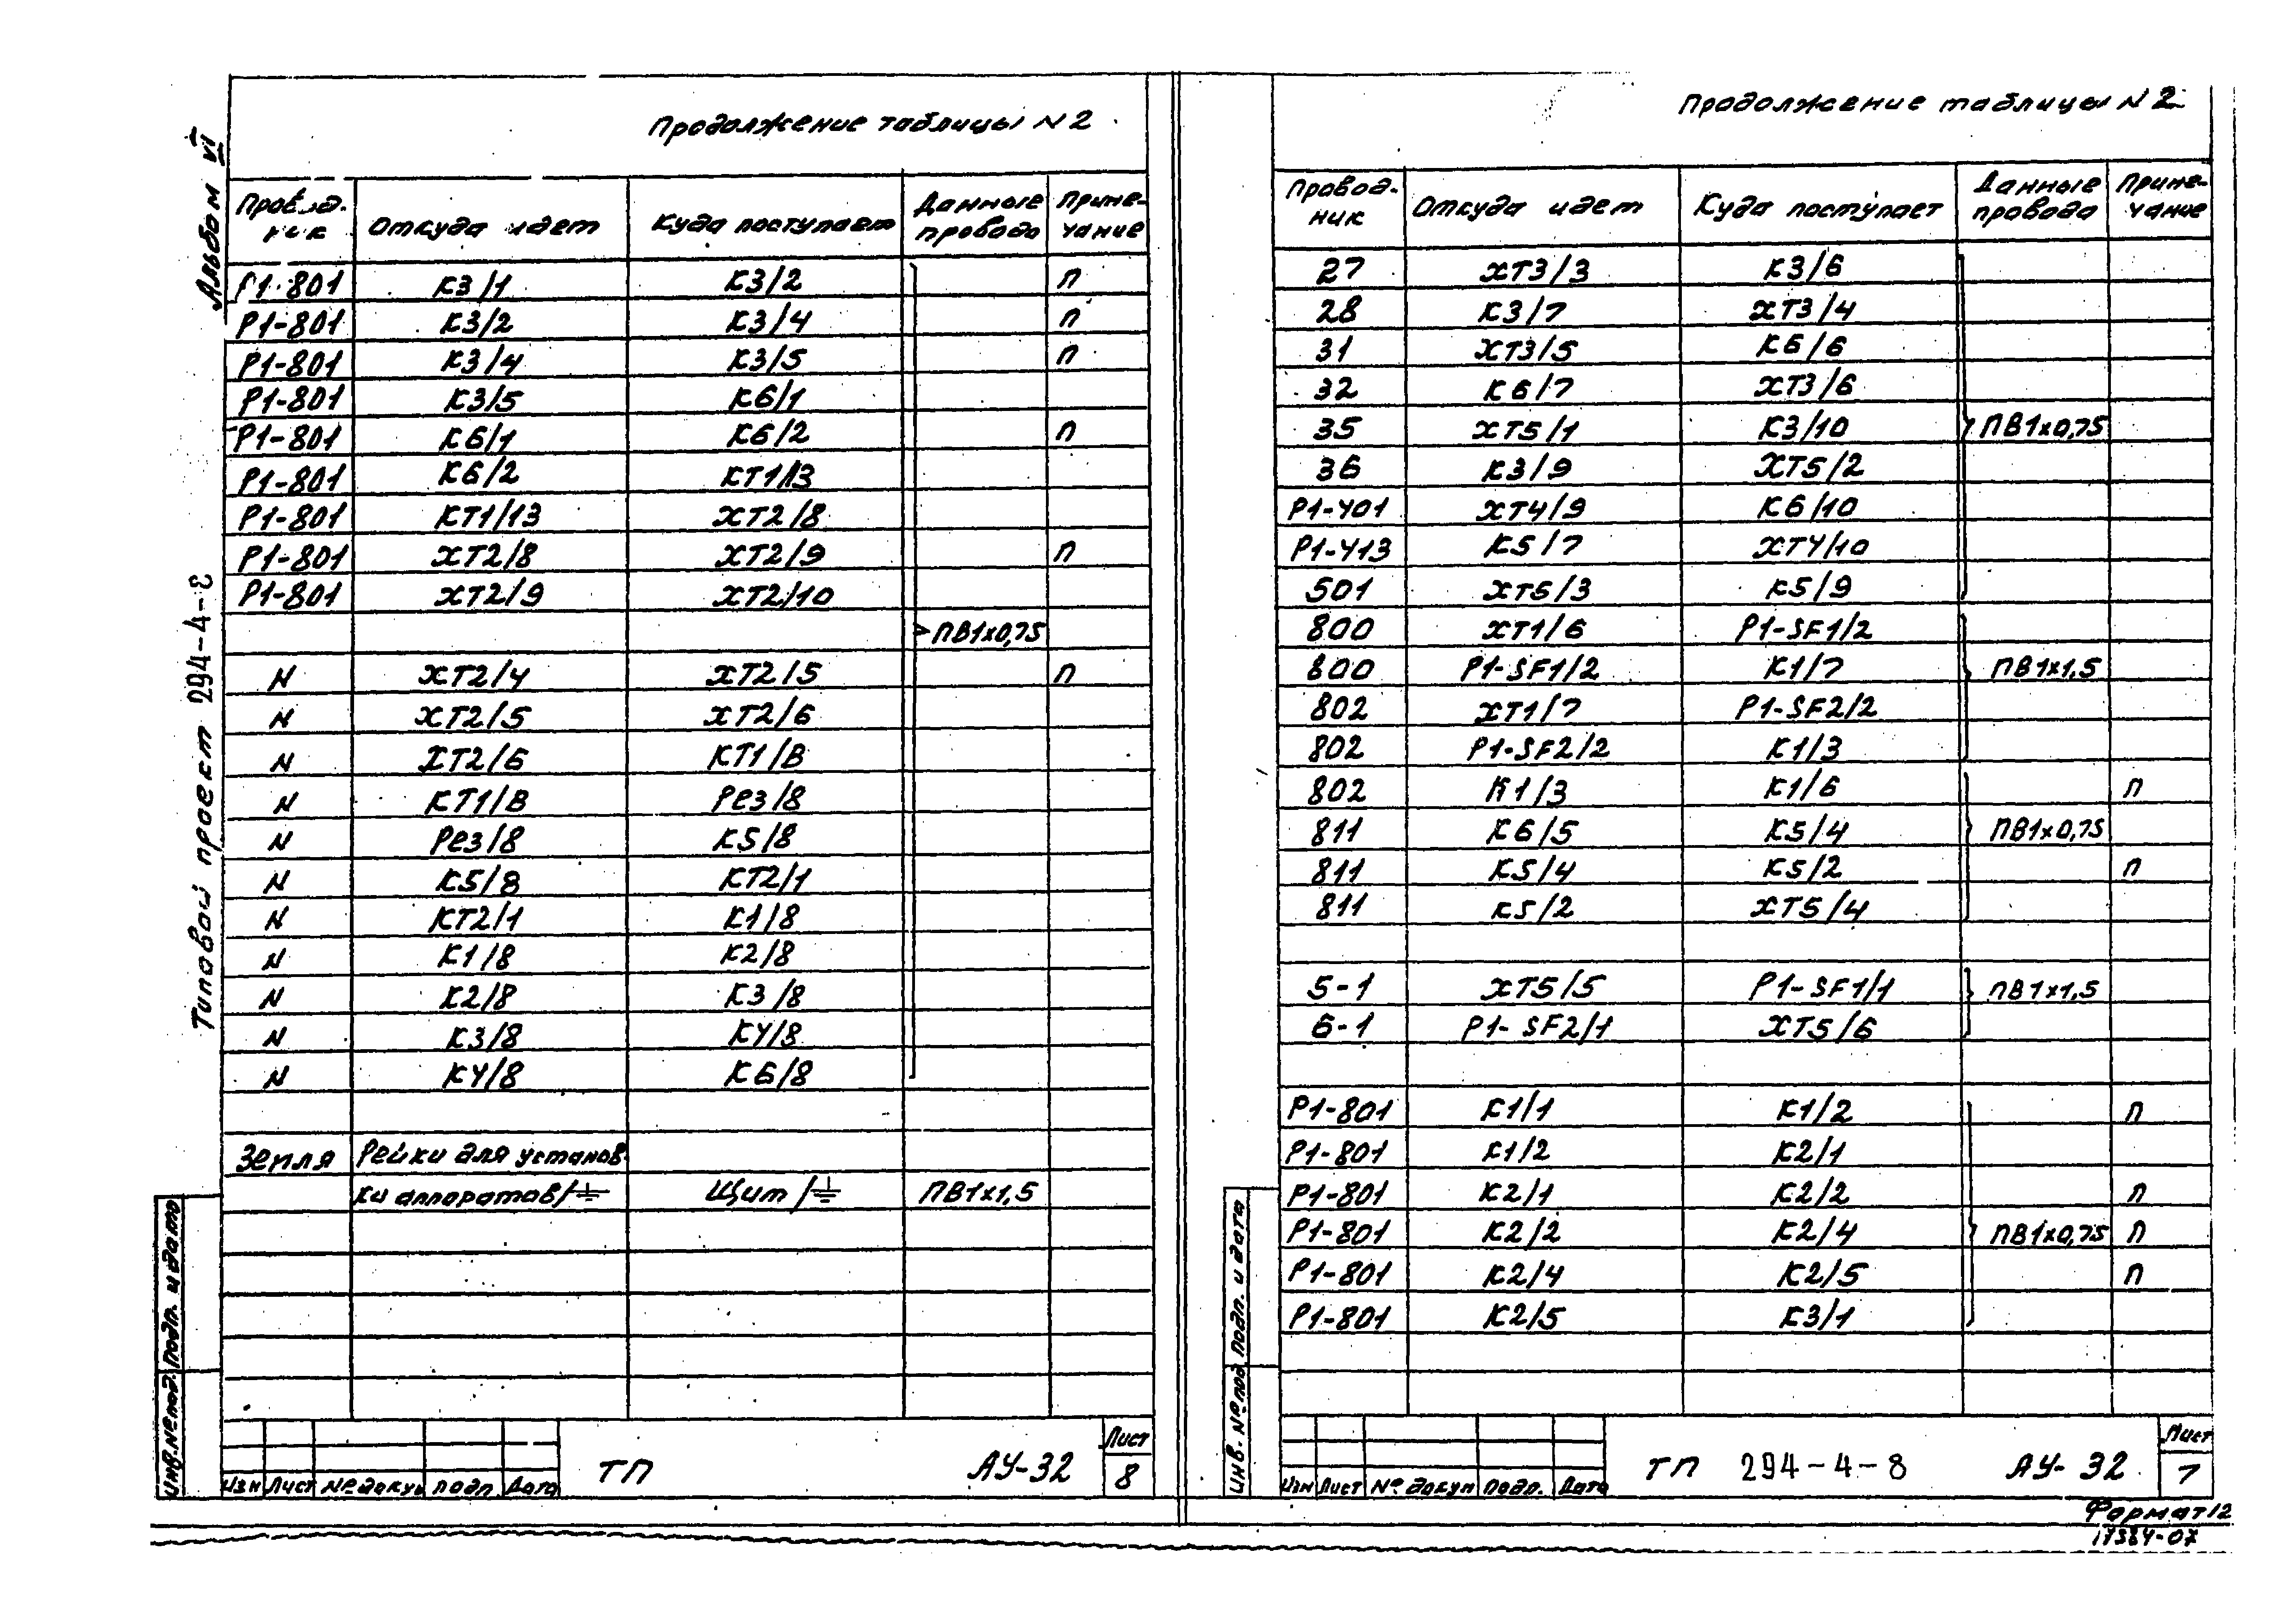 Альбом VI
Типовой проект 294-4-8
Продолжение таблицы N 2
Провод. Откуда идет Куда поступает Данные Приме-
ник провода чание
Р1-801 К3/1 К3/2 П
Р1-801 К3/2 К3/4 П
Р1-801 К3/4 К3/5 П
Р1-801 К3/5 К6/1
Р1-801 К6/1 К6/2 П
Р1-801 К6/2 КТ1/13
Р1-801 КТ1/13 ХТ2/8
Р1-801 ХТ2/8 ХТ2/9 П
Р1-801 ХТ2/9 ХТ2/10
ПВ1х0,75
N ХТ2/4 ХТ2/5 П
N ХТ2/5 ХТ2/6
N ХТ2/6 КТ1/В
N КТ1/В Рез/8
N Рез/8 К5/8
N К5/8 КТ2/1
N КТ2/1 К1/8
N К1/8 К2/8
N К2/8 К3/8
N К3/8 К4/8
N К4/8 К6/8
Земля Рейки для установ.
ки аппаратов/⏚ Щит/⏚ ПВ1х1,5
Инв.№подл. Подп. и дата
Изм Лист № докум подп. Дата
ТП АУ-32
Лист
8
Продолжение таблицы N 2
Провод. Откуда идет Куда поступает Данные Приме-
ник провода чание
27 ХТ3/3 К3/6
28 К3/7 ХТ3/4
31 ХТ3/5 К6/6
32 К6/7 ХТ3/6
35 ХТ5/1 К3/10 ПВ1х0,75
36 К3/9 ХТ5/2
Р1-401 ХТ4/9 К6/10
Р1-413 К5/7 ХТ4/10
501 ХТ5/3 К5/9
800 ХТ1/6 Р1-SF1/2
800 Р1-SF1/2 К1/7 ПВ1х1,5
802 ХТ1/7 Р1-SF2/2
802 Р1-SF2/2 К1/3
802 К1/3 К1/6 П
811 К6/5 К5/4 ПВ1х0,75
811 К5/4 К5/2 П
811 К5/2 ХТ5/4
5-1 ХТ5/5 Р1-SF1/1 ПВ1х1,5
6-1 Р1-SF2/1 ХТ5/6
Р1-801 К1/1 К1/2 П
Р1-801 К1/2 К2/1
Р1-801 К2/1 К2/2 П
Р1-801 К2/2 К2/4 ПВ1х0,75 П
Р1-801 К2/4 К2/5 П
Р1-801 К2/5 К3/1
Инв. №подл подп. и дата
Изм Лист № докум подп. Дата
ТП 294-4-8 АУ-32
Лист
7
Формат 12
17384-07